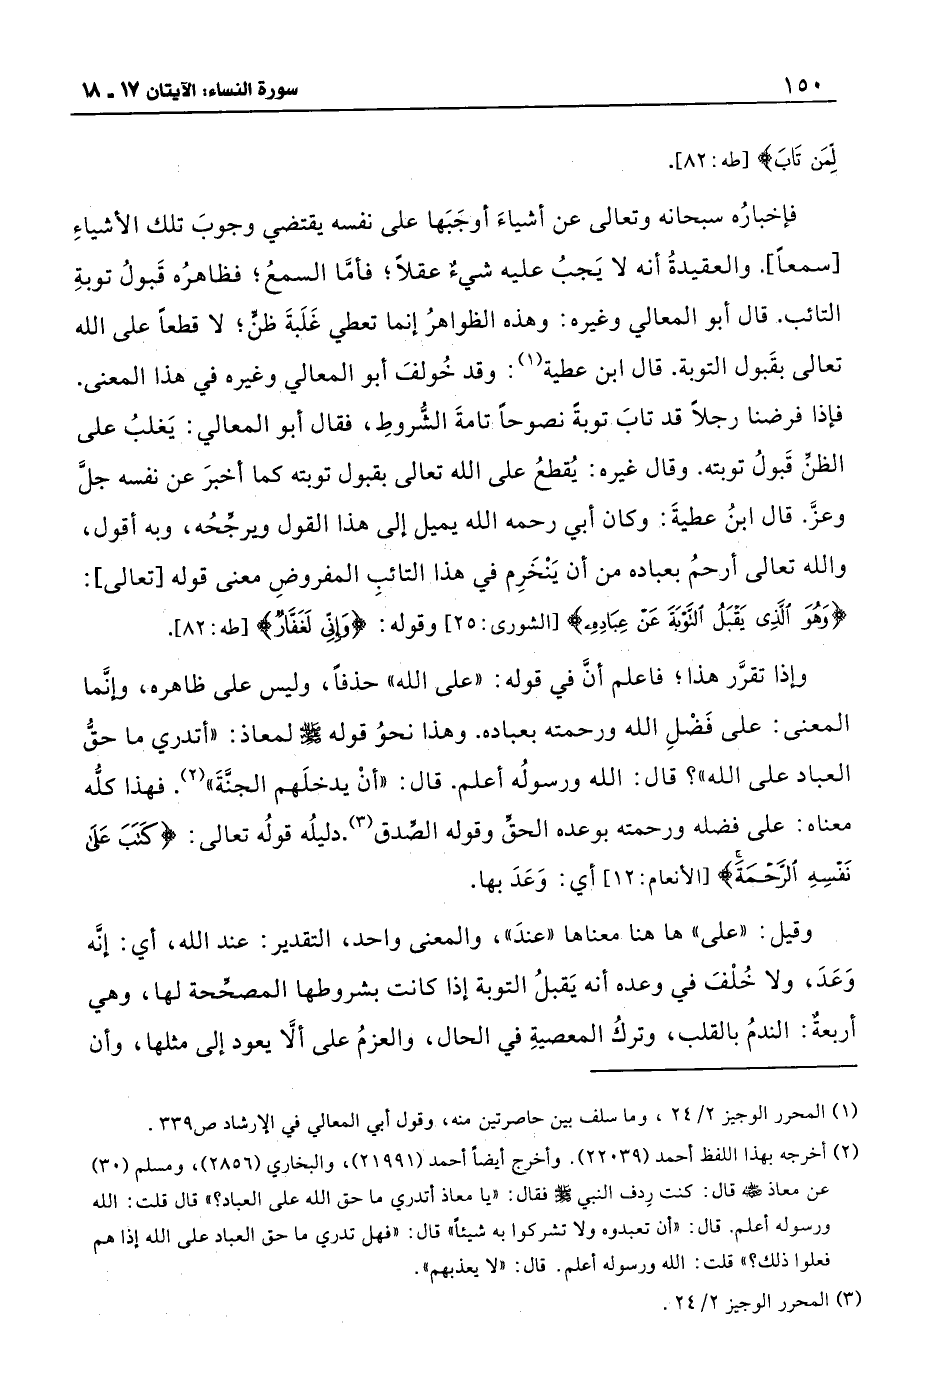 ١٥٠ سورة النساء: الآيتان ١٧ ـ ١٨
لِّمَن تَابَ﴾ [طه: ٨٢].
فإخبارُه سبحانه وتعالى عن أشياءَ أوجَبَها على نفسه يقتضي وجوبَ تلك الأشياءِ
[سمعاً]. والعقيدةُ أنه لا يَجبُ عليه شيءٌ عقلاً؛ فأمَّا السمعُ؛ فظاهرُه قَبولُ توبةِ
التائب. قال أبو المعالي وغيره: وهذه الظواهرُ إنما تعطي غَلَبةَ ظنٍّ؛ لا قطعاً على الله
تعالى بقَبول التوبة. قال ابن عطية(١): وقد خُولفَ أبو المعالي وغيره في هذا المعنى.
فإذا فرضنا رجلاً قد تابَ توبةً نصوحاً تامةَ الشُّروطِ، فقال أبو المعالي: يَغلبُ على
الظنِّ قَبولُ توبته. وقال غيره: يُقطعُ على الله تعالى بقبول توبته كما أخبرَ عن نفسه جلَّ
وعزَّ. قال ابنُ عطيةَ: وكان أبي رحمه الله يميل إلى هذا القول ويرجِّحُه، وبه أقول،
والله تعالى أرحمُ بعباده من أن يَنْخَرِم في هذا التائبِ المفروضِ معنى قوله [تعالى]:
﴿وَهُوَ ٱلَّذِى يَقْبَلُ ٱلتَّوْبَةَ عَنْ عِبَادِهِۦ﴾ [الشورى: ٢٥] وقوله: ﴿وَإِنِّى لَغَفَّارٌ﴾ [طه: ٨٢].
وإذا تقرَّر هذا؛ فاعلم أنَّ في قوله: «على الله» حذفاً، وليس على ظاهره، وإنَّما
المعنى: على فَضْلِ الله ورحمته بعباده. وهذا نحوُ قوله ﷺ لمعاذ: «أتدري ما حقُّ
العباد على الله»؟ قال: الله ورسولُه أعلم. قال: «أنْ يدخلَهم الجنَّةَ»(٢). فهذا كلُّه
معناه: على فضله ورحمته بوعده الحقِّ وقوله الصِّدق(٣).دليلُه قولُه تعالى: ﴿كَتَبَ عَلَىٰ
نَفْسِهِ ٱلرَّحْمَةَۚ﴾ [الأنعام: ١٢] أي: وَعَدَ بها.
وقيل: «على» ها هنا معناها «عندَ»، والمعنى واحد، التقدير: عند الله، أي: إنَّه
وَعَدَ، ولا خُلْفَ في وعده أنه يَقبلُ التوبة إذا كانت بشروطها المصحِّحة لها، وهي
أربعةٌ: الندمُ بالقلب، وتركُ المعصيةِ في الحال، والعزمُ على ألَّا يعود إلى مثلها، وأن
(١) المحرر الوجيز ٢/ ٢٤ ، وما سلف بين حاصرتين منه، وقول أبي المعالي في الإرشاد ص٣٣٩ .
(٢) أخرجه بهذا اللفظ أحمد (٢٢٠٣٩). وأخرج أيضاً أحمد (٢١٩٩١)، والبخاري (٢٨٥٦)، ومسلم (٣٠)
عن معاذ ﵁ قال: كنت رِدف النبي ﷺ فقال: «يا معاذ أتدري ما حق الله على العباد؟» قال قلت: الله
ورسوله أعلم. قال: «أن تعبدوه ولا تشركوا به شيئاً» قال: «فهل تدري ما حق العباد على الله إذا هم
فعلوا ذلك؟» قلت: الله ورسوله أعلم. قال: «لا يعذبهم».
(٣) المحرر الوجيز ٢/ ٢٤ .